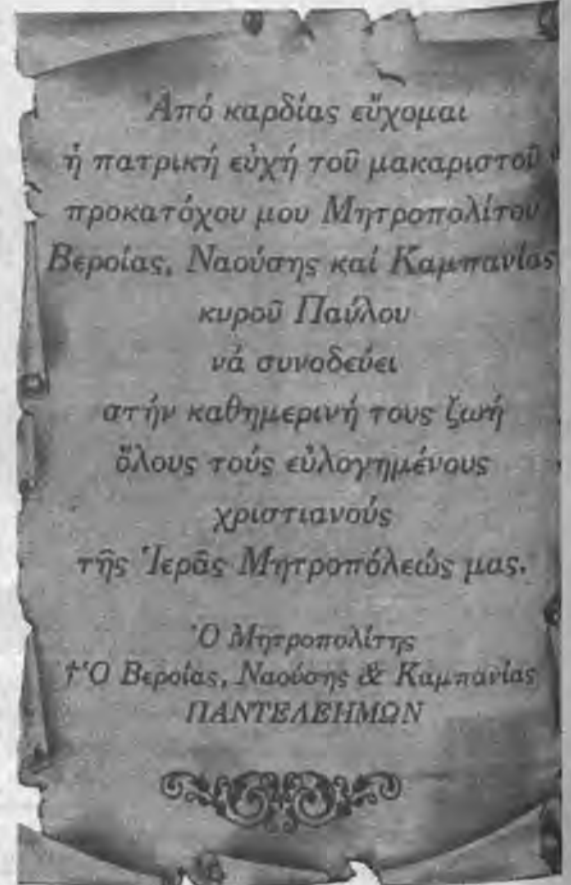 Ἀπό καρδίας εὔχομαι
ἡ πατρική εὐχή τοῦ μακαριστοῦ
προκατόχου μου Μητροπολίτου
Βεροίας, Ναούσης καί Καμπανίας
κυροῦ Παύλου
νά συνοδεύει
στήν καθημερινή τους ζωή
ὅλους τούς εὐλογημένους
χριστιανούς
τῆς Ἱερᾶς Μητροπόλεώς μας.
Ὁ Μητροπολίτης
†Ὁ Βεροίας, Ναούσης & Καμπανίας
ΠΑΝΤΕΛΕΗΜΩΝ